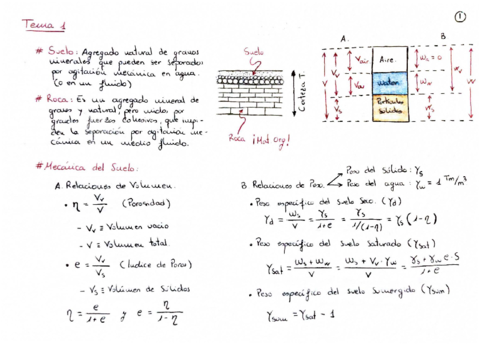 1
Tema 1
# Suelo: Agregado natural de granos
minerales que pueden ser separados
por agitación mecánica en agua.
(o en un fluido)
# Roca: Es un agregado mineral de
granos y natural, pero unido por
grandes fuerzas cohesivas, que impi-
den la separación por agitación me-
cánica en un medio fluido.
Suelo
Corteza T.
Roca ¡Mat Org!
A. B.
Vv Vair Aire. Ws = 0 Wv
V Vw water. Ww W
Vs Partículas Ws
sólidas
# Mecánica del Suelo:
A Relaciones de Volumen.
• η = Vv/V (Porosidad)
- Vv ≡ Volumen vacio
- V ≡ Volumen total.
• e = Vv/Vs (Índice de Poros)
- Vs ≡ Volúmen de Sólidos
η = e/1+e y e = η/1-η
B Relaciones de Peso.
Peso del sólido: γs
Peso del agua: γw = 1 Tm/m³
• Peso específico del suelo Seco. (γd)
γd = Ws/V = γs/1+e = γs/1/(1-η) = γs (1-η)
• Peso específico del suelo saturado (γsat)
γsat = Ws+Ww/V = Ws + Vv·γw/V = γs + γw e·S/1+e
• Peso específico del suelo sumergido (γsum)
γsum = γsat - 1